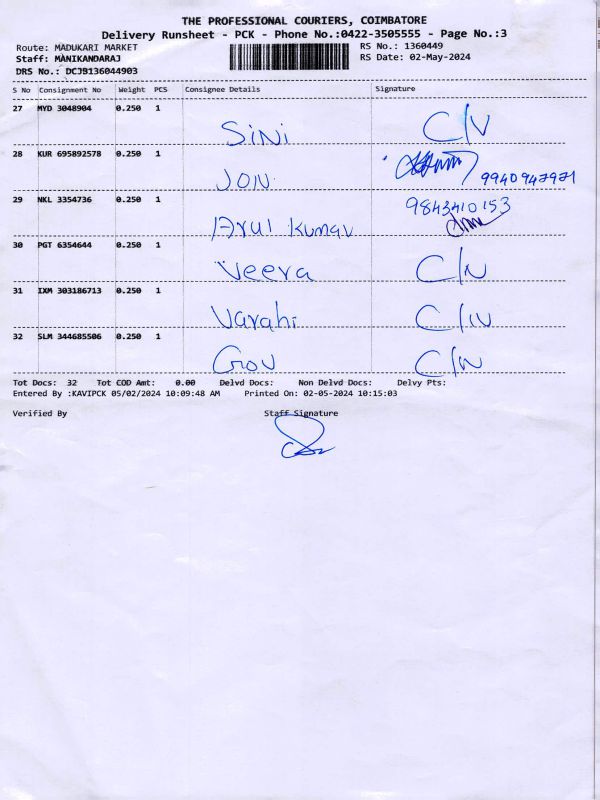 THE PROFESSIONAL COURIERS, COIMBATORE
Delivery Runsheet - PCK - Phone No.:0422-3505555 - Page No.:3
Route: MADUKARI MARKET RS No.: 1360449
Staff: MANIKANDARAJ RS Date: 02-May-2024
DRS No.: DCJB136044903
S No Consignment No Weight PCS Consignee Details Signature
27 MYD 3048904 0.250 1 Sini C/V
28 KUR 695892578 0.250 1 JON
29 NKL 3354736 0.250 1 Arul Kumar 9843410153
30 PGT 6354644 0.250 1 Veera C/N
31 IXM 303186713 0.250 1 Varahi
32 SLM 344685506 0.250 1 Gov
Tot Docs: 32 Tot COD Amt: 0.00 Delvd Docs: Non Delvd Docs: Delvy Pts:
Entered By :KAVIPCK 05/02/2024 10:09:48 AM Printed On: 02-05-2024 10:15:03
Verified By Staff Signature